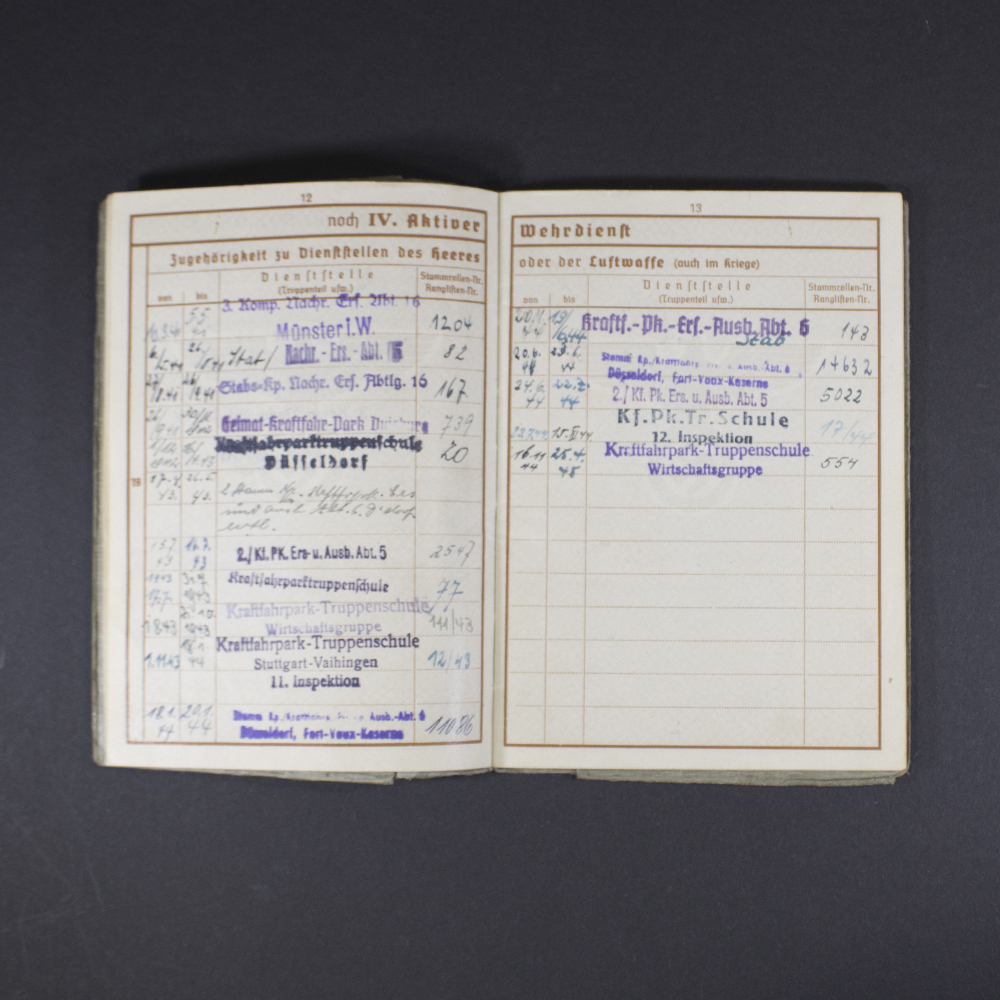 12
noch IV. Aktiver
Zugehörigkeit zu Dienststellen des Heeres
von
bis
Dienststelle
(Truppenteil usw.)
Stammrollen-Nr.
Ranglisten-Nr.
3. Komp. Nachr. Ers. Abt. 16
Münster i.W.
1204
Stab/ Nachr.-Ers.-Abt.
82
Stabs-Kp. Nachr. Ers. Abtlg. 16
167
Heimat-Kraftfahr-Park Duisburg
739
Kraftfahrparktruppenschule
Düsseldorf
20
2./Kf. PK. Ers- u. Ausb. Abt. 5
2547
Kraftfahrparktruppenschule
77
Kraftfahrpark-Truppenschule
Wirtschaftsgruppe
111/43
Kraftfahrpark-Truppenschule
1.11.43
Stuttgart-Vaihingen
12/43
11. Inspektion
18.1.
44
20.1.
44
Stamm Kp./Kraftfahrp. Ausb.-Abt. 6
Düsseldorf, Fort-Vaux-Kaserne
11086
13
Wehrdienst
oder der Luftwaffe (auch im Kriege)
von
bis
Dienststelle
(Truppenteil usw.)
Stammrollen-Nr.
Ranglisten-Nr.
Kraftf.-Pk.-Ers.-Ausb. Abt. 6
Stab
143
20.6.
44
23.6.
44
Stamm Kp./Kraftfahrp. Ausb. Abt. 6
Düsseldorf, Fort-Vaux-Kaserne
14632
24.6.
44
22.7.
44
2./Kf. Pk. Ers. u. Ausb. Abt. 5
5022
Kf.Pk.Tr.Schule
12. Inspektion
17/44
16.11
44
25.4.
45
Kraftfahrpark-Truppenschule
Wirtschaftsgruppe
554